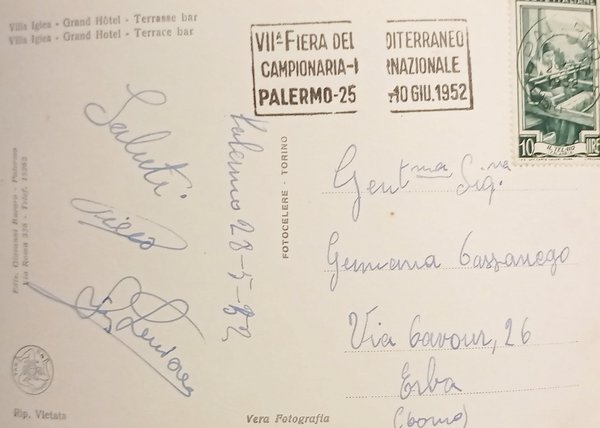 Villa Igiea - Grand Hôtel - Terrasse bar
Villa Igiea - Grand Hotel - Terrace bar
VIIª FIERA DEL DITERRANEO
CAMPIONARIA- RNAZIONALE
PALERMO-25 10 GIU. 1952
10 LIRE
IL TELAIO
Saluti
Palermo 28-5-52
Gent.ma Sig.na
Germana Cassanego
Via Cavour, 26
Erba
(Como)
FOTOCELERE - TORINO
Via Roma 336 - Telef.
Rip. Vietata
Vera Fotografia